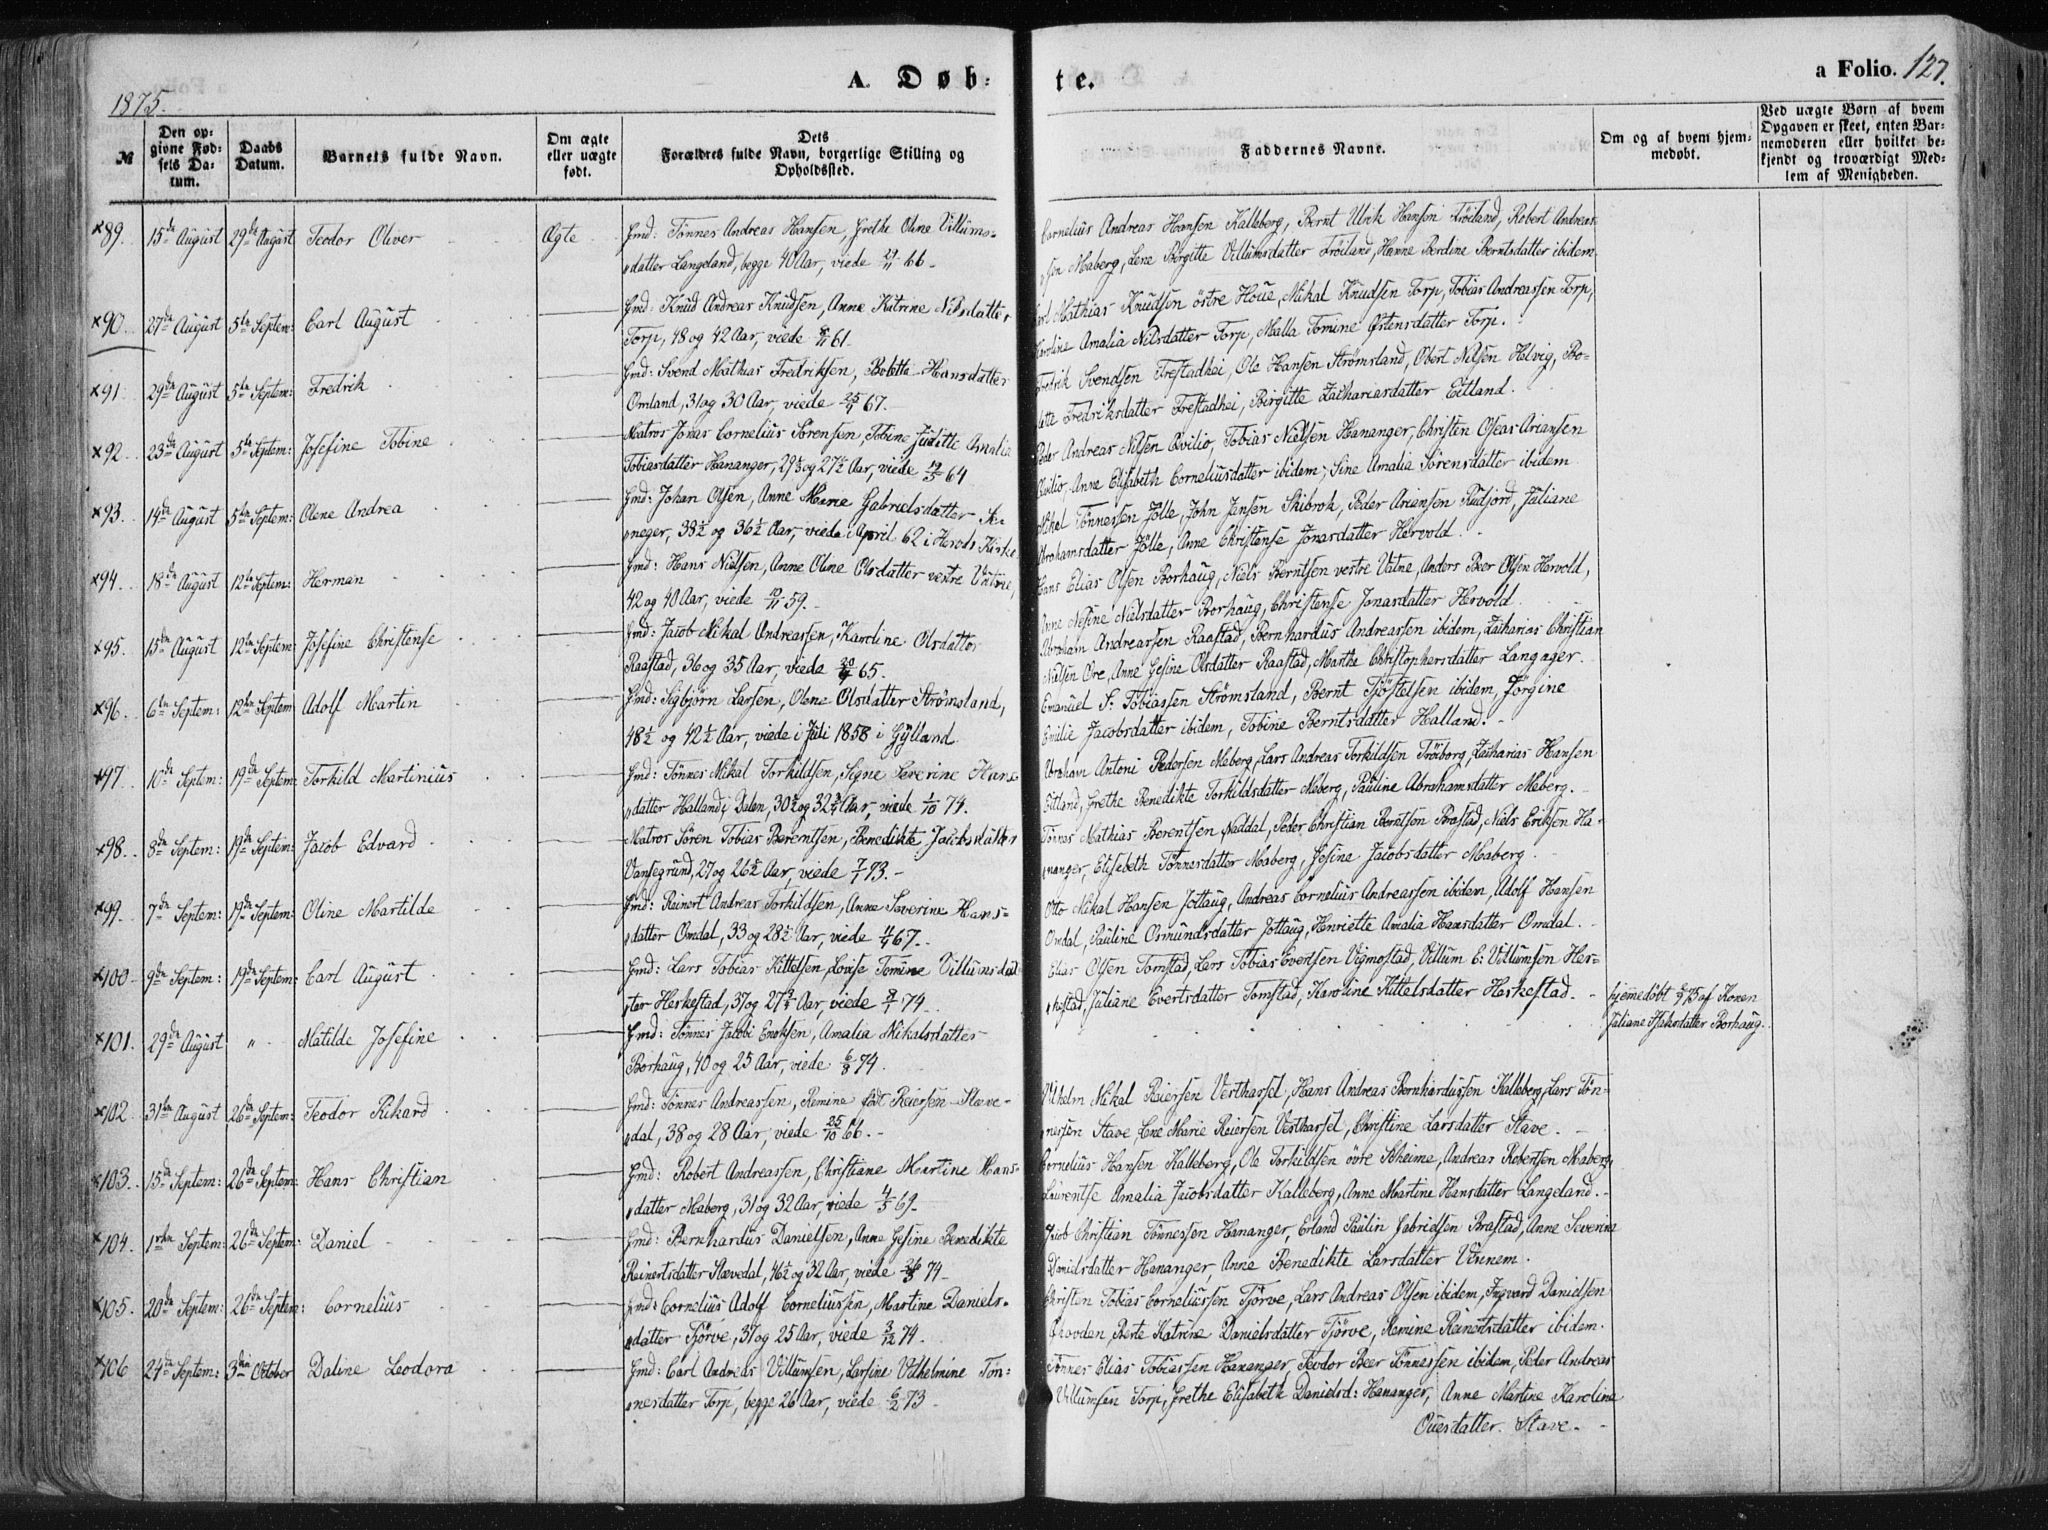 A. Døb=
te.
a Folio. 127.
1875.
№
Den op=
givne Fød=
sels Da=
tum.
Daabs
Datum.
Barnets fulde Navn.
Om ægte
eller uægte
født.
Dets
Forældres fulde Navn, borgerlige Stilling og
Opholdssted.
Faddernes Navne.
Om og af hvem hjem=
medøbt.
Ved uægte Børn af hvem
Opgaven er skeet, enten Bar=
nemoderen eller hvilket be=
kjendt og troværdigt Med=
lem af Menigheden.
×89. 15de August 29de August Teodor Oliver Ægte Gmd: Tønnes Andreas Hansen, Grethe Oline Villums= Cornelius Andreas Hansen Kalleberg, Bernt Ulrik Hansen Frøiland, Robert Andreas=
datter Langeland, begge 40 Aar, viede 29/11 66. sen Maberg, Lene Birgitte Villumsdatter Frøiland, Hanne Berdine Berntsdatter ibidem.
×90. 27de August 5te Septem: Carl August Gmd: Knud Andreas Knudsen, Anne Katrine Nilsdatter Carl Mathias Knudsen østre Houe, Mikal Knudsen Torp, Tobias Andreassen Torp,
Torp, 48 og 42 Aar, viede 8/11 61. Karoline Amalia Nilsdatter Torp, Malla Tomine Østensdatter Torp.
×91. 29de August 5te Septem: Fredrik Gmd: Svend Mathias Fredriksen, Bolette Hansdatter Fredrik Svendsen Frestadhei, Ole Hansen Strømsland, Obert Nilsen Helvig, Bo=
Omland, 31 og 30 Aar, viede 25/11 67. lette Fredriksdatter Frestadhei, Birgitte Zachariasdatter Eitland.
×92. 23de August 5te Septem: Josefine Tobine Matros Jonas Cornelius Sørensen, Tobine Juditte Amalia Peder Andreas Nilsen Qvilio, Tobias Nielsen Hananger, Christen Oseas Ariansen
Tobiasdatter Hananger, 29 og 27½ Aar, viede 64 Qvilio, Anne Elisabeth Corneliusdatter ibidem, Sine Amalia Sørensdatter ibidem
×93. 14de August 5te Septem: Olene Andrea Gmd: Johan Olsen, Anne Marie Gabrielsdatter Ske= Mikal Tønnessen Jølle, John Jansen Skibrok, Peder Ariansen Rudjord, Juliane
neger, 38½ og 36½ Aar, viede i April 62 i Herods Kirke Abrahamsdatter Jølle, Anne Christense Jonasdatter Hervold.
×94. 18de August 12te Septem: Herman Gmd: Hans Nielsen, Anne Oline Olsdatter vestre Vatne, Hans Elias Olsen Borhaug, Niels Berntsen vestre Vatne, Anders Beer Olsen Hervold,
42 og 40 Aar, viede 10/11 59. Anne Nesine Nielsdatter Borhaug, Christense Jonasdatter Hervold.
×95. 15de August 12te Septem: Josefine Christense Gmd: Jacob Mikal Andreassen, Karoline Olsdatter Abraham Andreassen Raastad, Bernhardus Andreassen ibidem, Zacharias Christian
Raastad, 36 og 35 Aar, viede 65. Nielsen Ore, Anne Gesine Olsdatter Raastad, Marthe Christophersdatter Langager.
×96. 6te Septem: 12te Septem Adolf Martin Gmd: Sigbjørn Larsen, Olene Olsdatter Strømsland, Emanuel S. Tobiassen Strømsland, Bernt Tjøstelsen ibidem, Jørgine
48½ og 42½ Aar, viede i Juli 1858 i Gylland Emilie Jacobsdatter ibidem, Tobine Berntsdatter Halland.
×97. 10de Septem: 19de Septem: Torkild Martinius Gmd: Tønnes Mikal Torkildsen, Signe Severine Hans= Abraham Antoni Pedersen Meberg, Lars Andreas Torkildsen Frøiborg, Zacharias Hansen
datter Halland i Dalen, 30½ og 32 Aar, viede 1/10 74. Eitland, Grethe Benedikte Torkildsdatter Meberg, Pauline Abrahamsdatter Meberg.
×98. 8de Septem: 19de Septem: Jacob Edvard Matros Søren Tobias Berentsen, Benedikte Jacobsdatter Tønnes Mathias Berentsen Naddal, Peder Christian Berntsen Brastad, Niels Eriksen Ha=
Vansegrund, 27 og 26½ Aar, viede 7/7 73. nanger, Elisebeth Tønnesdatter Maberg, Gesine Jacobsdatter Maberg.
×99. 7de Septem: 19de Septem: Oline Martilde Gmd: Reinert Andreas Torkildsen, Anne Severine Hans= Otto Mikal Hansen Jøttaug, Andreas Cornelius Andreassen ibidem, Adolf Hansen
datter Omdal, 33 og 28½ Aar, viede 67. Omdal, Pauline Osmundsdatter Jøttaug, Henriette Amalia Hansdatter Omdal.
×100 9de Septem: 19de Septem: Carl August Gmd: Lars Tobias Kittelsen, Lovise Tomine Villumsdat= Elias Olsen Tomstad, Lars Tobias Evertsen Vigmostad, Villum E. Villumsen Hes=
ter Heskestad, 37 og 27½ Aar, viede 74. kestad, Juliane Evertsdatter Tomstad, Karoline Kittelsdatter Heskestad.
×101. 29de August " Matilde Josefine Gmd: Tønnes Jacob Enoksen, Amalia Mikalsdatter hjemmedøbt 75 af Konen
Borhaug, 40 og 25 Aar, viede 6/8 74. Juliane Isaksdatter Borhaug.
×102 31te August 26de Septem: Teodor Rikard Gmd: Tønnes Andreassen, Remine født Reiersen Stave= Vilhelm Mikal Reiersen Vesthassel, Hans Andreas Bernhardussen Kalleberg, Lars Tøn=
dal, 38 og 28 Aar, viede 25/10 66. nessen Stave, Lene Marie Reiersen Vesthassel, Christine Larsdatter Stave.
×103. 15de Septem: 26de Septem: Hans Christian Gmd: Robert Andreassen, Christiane Martine Hans= Cornelius Hansen Kalleberg, Ole Torkildsen øvre Skeime, Andreas Robertsen Maberg,
datter Maberg, 31 og 32 Aar, viede 4/5 69. Laurentse Amalia Jacobsdatter Kalleberg, Anne Martine Hansdatter Langeland.
×104. 1ste Septem: 26de Septem: Daniel Gmd: Bernhardus Danielsen, Anne Gesine Benedikte Jacob Christian Tønnessen Hananger, Erland Paulin Gabrielsen Brastad, Anne Severine
Reinertsdatter Stavedal, 46½ og 32 Aar, viede 74. Danielsdatter Hananger, Anne Benedikte Larsdatter Vennem.
×105. 20de Septem: 26de Septem: Cornelius Gmd: Cornelius Adolf Corneliussen, Martine Daniels= Christen Tobias Corneliussen Tjørve, Lars Andreas Olsen ibidem, Ingvard Danielsen
datter Tjørve, 37 og 25 Aar, viede 3/12 74. Skovden, Berte Katrine Danielsdatter Tjørve, Remine Reinertsdatter ibidem.
×106 24de Septem: 3die October Daline Leodora Gmd: Carl Andreas Villumsen, Larsine Vilhelmine Tøn= Tønnes Elias Tobiassen Hananger, Teodor Beer Tønnessen ibidem, Peder Andreas
nesdatter Torp, begge 26 Aar, viede 6/2 73 Villumsen Torp, Grethe Elisabeth Danielsd: Hananger, Anne Martine Karoline
Ouesdatter Stave.